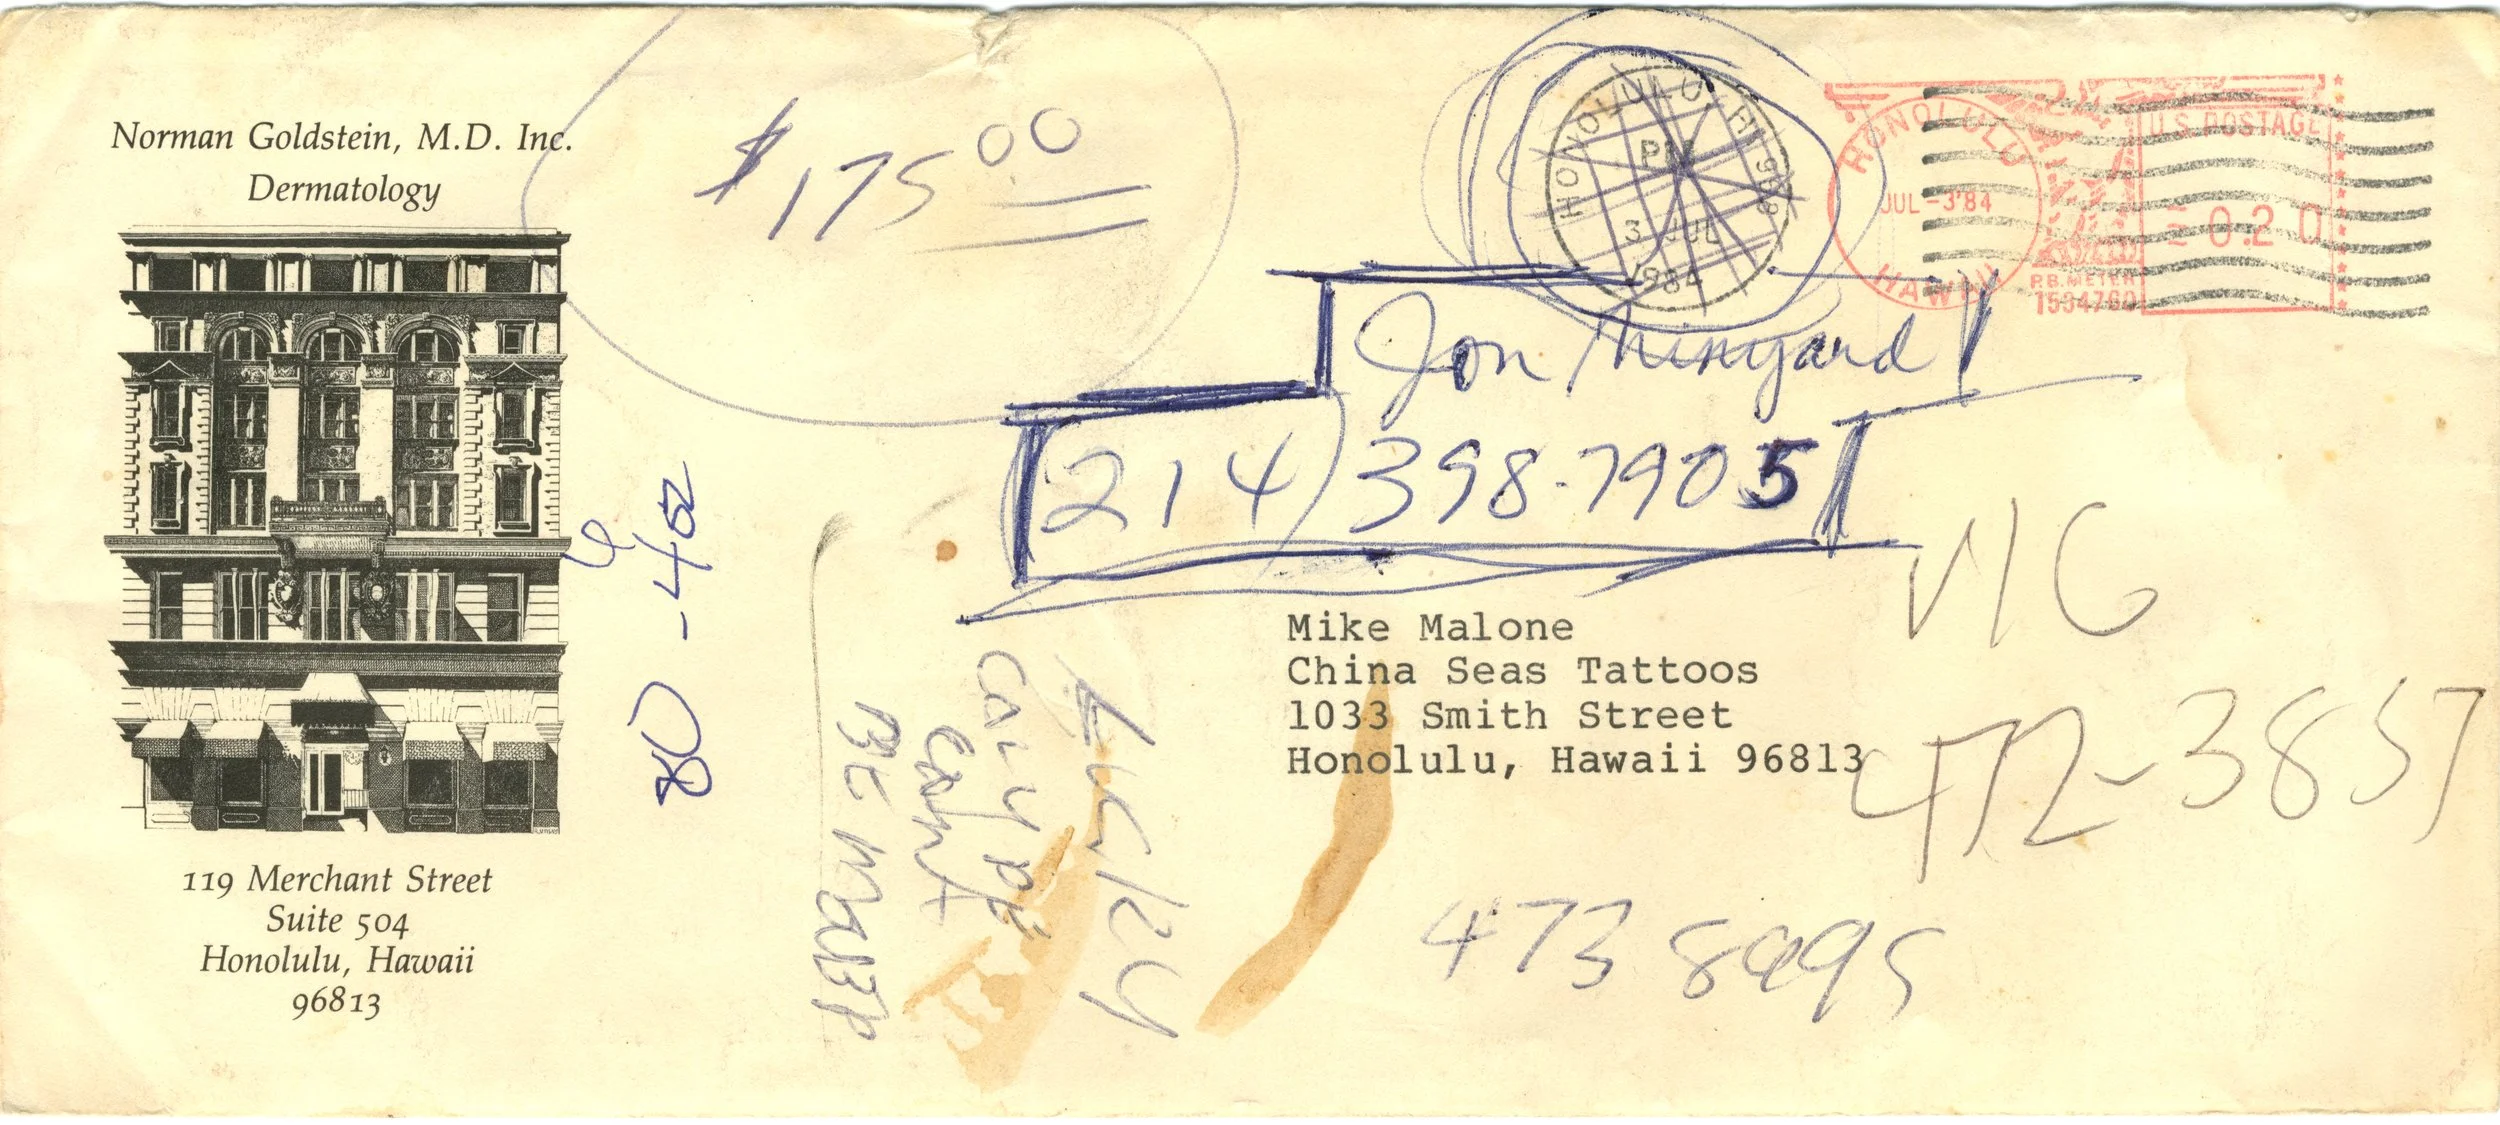 Norman Goldstein, M.D. Inc.
Dermatology
119 Merchant Street
Suite 504
Honolulu, Hawaii
96813
$175 00
HONOLULU, HI 968
PM
3 JUL
1984
HONOLULU
JUL -3'84
HAWAII
U.S. POSTAGE
0.20
P.B. METER
Jon Minyard
(214) 398-7905
Mike Malone
China Seas Tattoos
1033 Smith Street
Honolulu, Hawaii 96813
VIC
472-3857
473 8995
80 - 402
Lucky